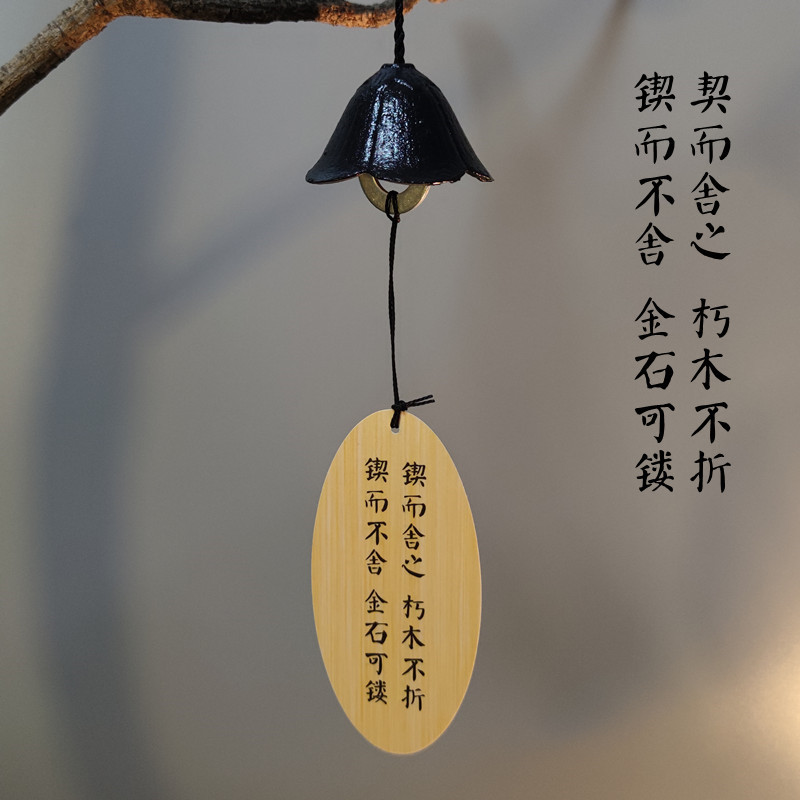 契而舍之 朽木不折
锲而不舍 金石可镂
锲而舍之 朽木不折
锲而不舍 金石可镂